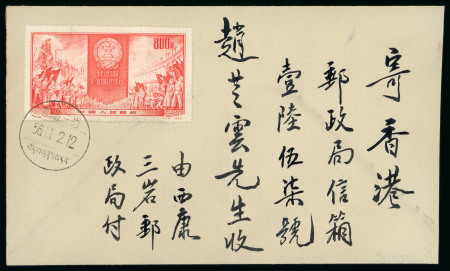 寄香港
郵政局信箱
壹陸伍柒號
趙芝雲先生收
由西康
三岩郵
政局付
800圓
中國人民郵政
56.11.2.12